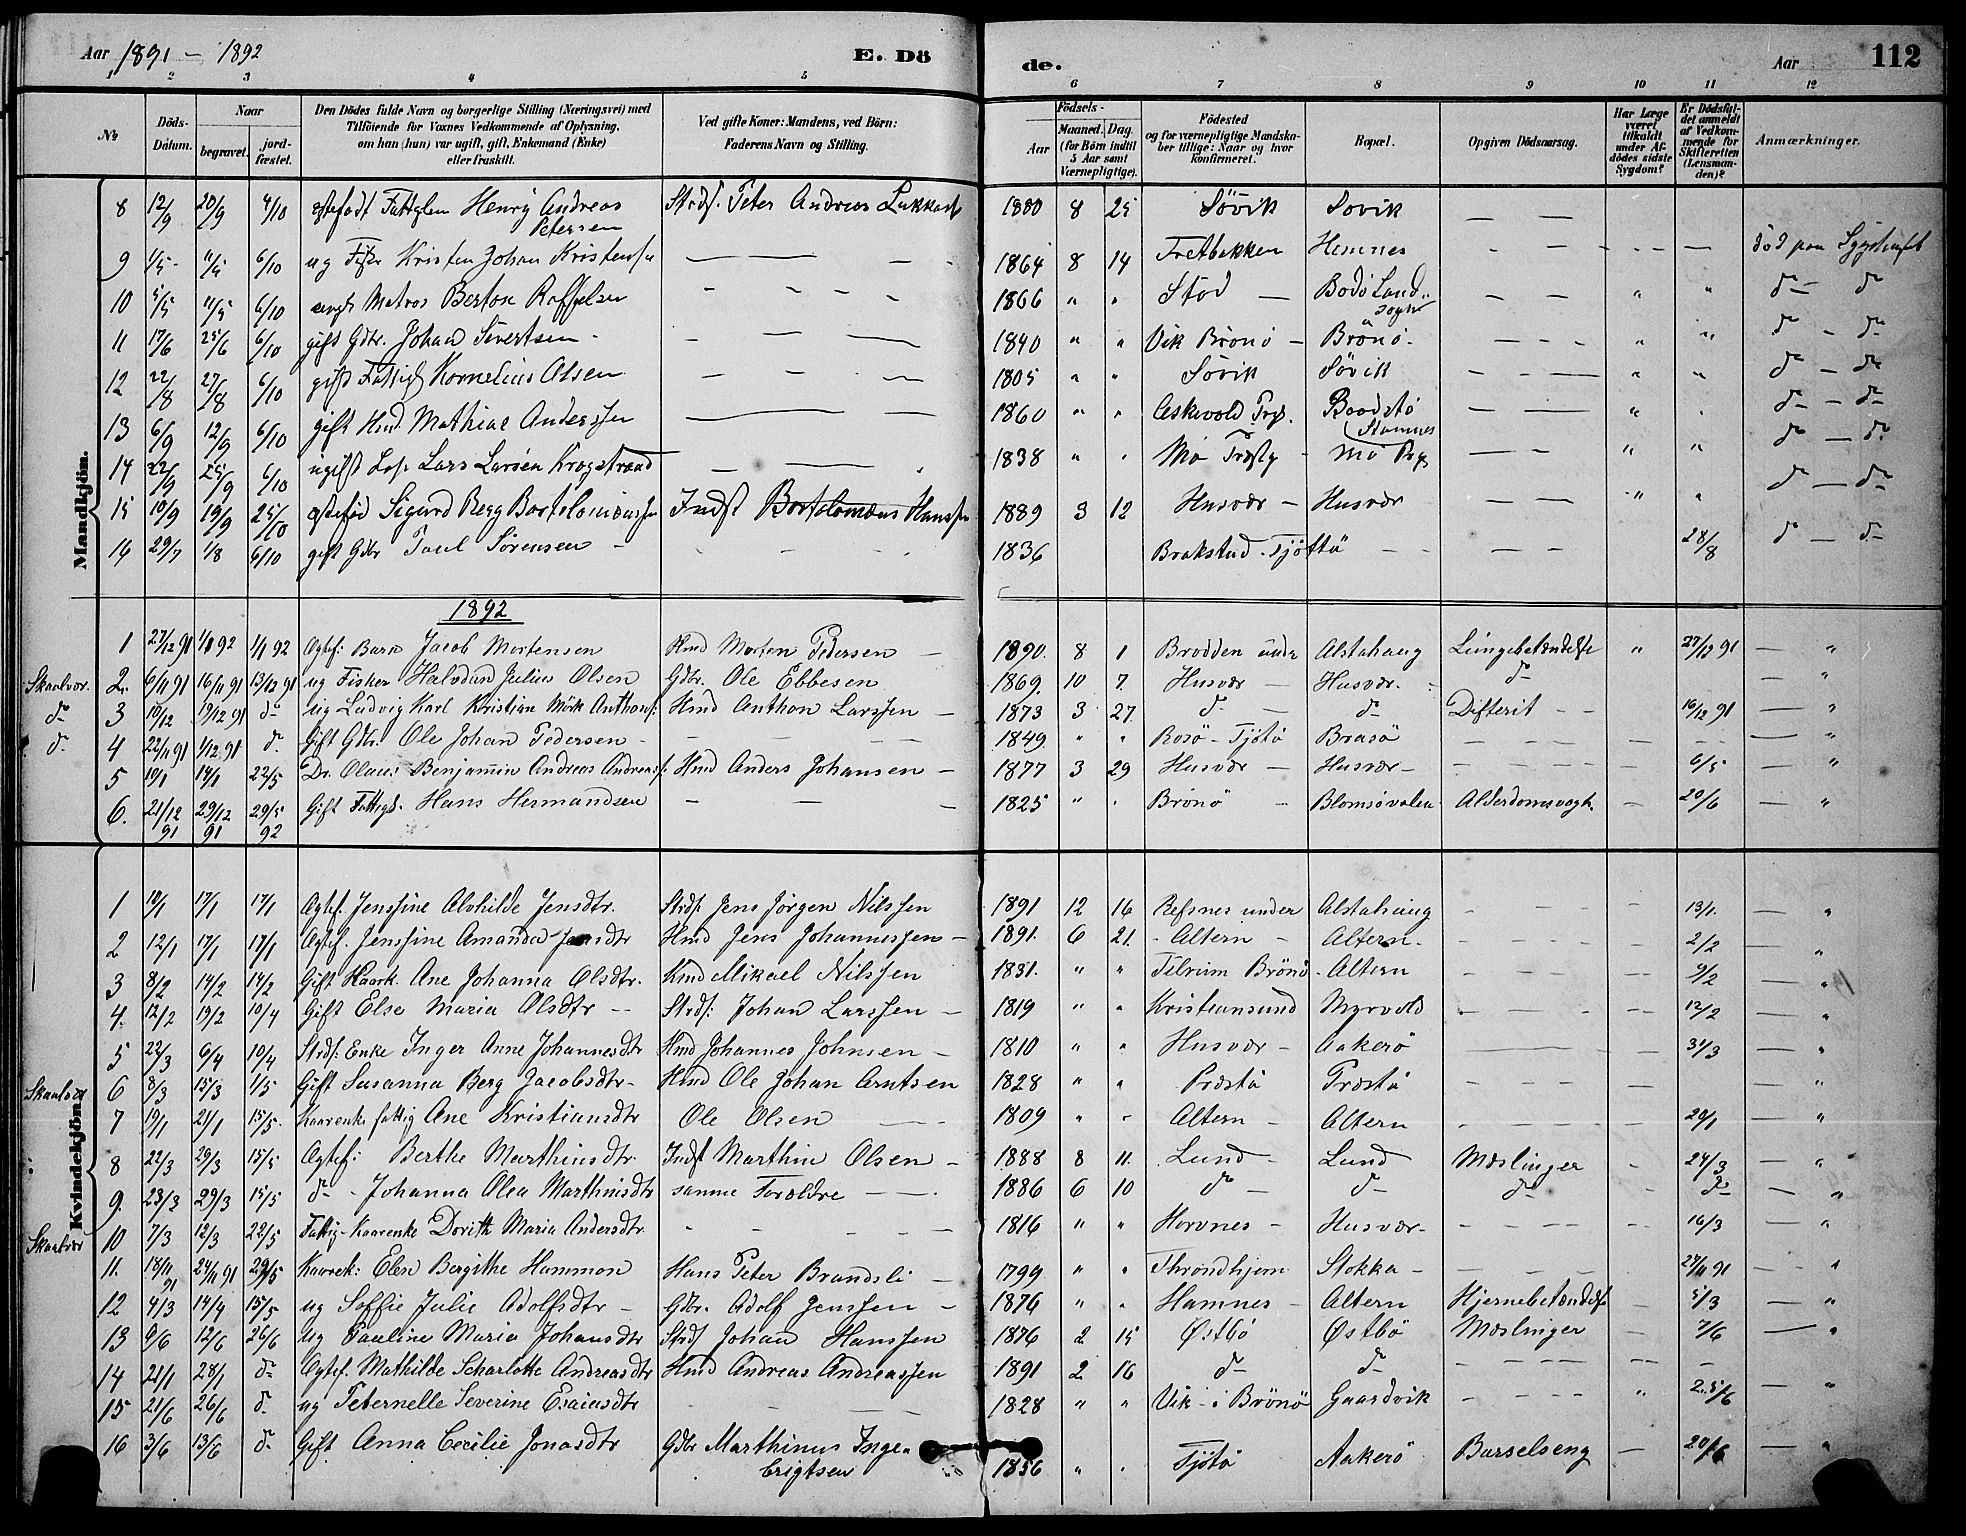 Aar 1891 – 1892 E. Dö de. Aar 112
1 2 3 4 5 6 7 8 9 10 11 12
No Döds-Datum. Naar begravet. jordfæstet. Den Dödes fulde Navn og borgerlige Stilling (Næringsvei) med Tilföiende for Voxnes Vedkommende af Oplysning, om han (hun) var ugift, gift, Enkemand (Enke) eller fraskilt. Ved gifte Koner: Mandens, ved Börn: Faderens Navn og Stilling. Födsels- Aar Maaned. Dag. (for Börn indtil 5 Aar samt Værnepligtige). Födested og for værnepligtige Mandskaber tillige: Naar og hvor konfirmeret. Bopæl. Opgiven Dödsaarsag. Har Læge været tilkaldt under Afdödes sidste Sygdom? Er Dödsfaldet anmeldt af Vedkommende for Skifteretten (Lensmanden)? Anmærkninger.
Mandkjön.
8 12/9 20/9 4/10 Henrij Andreas Petersen Strds. Peter Andreas 1880 8 25 Sövik Sovik — —
9 1/5 6/10 ug Kristen Johan Kristensen — 1864 8 14 Hemnes — död paa
10 5/5 11/5 6/10 Matros Berton Roffelsen 1866 " " Stod — Bodö Landsogn — " " do – do
11 17/6 25/6 6/10 gift Gdbr. Johan Sivertsen 1840 " " Vik Brönö – Brönö. — " " do – do
12 22/8 27/8 6/10 gift Kornelius Olsen 1805 " " Sövik Sövik — " " do – do
13 6/9 12/9 6/10 gift Hmd. Mathias Anderssen 1860 " " — " . do – do
14 22/9 25/9 6/10 ugift Lars Larsen Krogstrand 1838 " " Mo — Mo " " do – do
15 10/9 19/9 25/10 Sigurd Berg Bartolomæussen Indst Bartolomæus Hanssen 1889 3 12 Husvær – Husvær — " " do – do
16 29/7 1/8 6/10 gift Gdbr Paul Sörensen – 1836 Brakstad Tjöttö — 28/8 do – do
1892
1 27/12 91 92 1/1 92 Ægtef: Barn Jacob Mortensen Hmd Morten Pedersen — 1890. 8 1 Brodden undr Alstahaug Lungebetændelse " 27/12 91 — "
Skaalvær. 2. 6/11 91 16/11 91 13/12 91 ug Fisker Halvdan Julius Olsen Gdbr. Ole Ebbesen 1869. 10 7. Husvær — Husvær. do — "
do 3 10/12 19/12 91 do ug Ludvig Karl Kristian Mörk Anthons: Hmd Anthon Larssen — 1873 3 27 do — do Difterit – – 16/12 91 — "
do 4 22/11 91 1/12 91 do Gift Gdbr. Ole Johan Pedersen – 1849 " " Rosö – Tjötö Brasö — — "
5 10/1 14/1 22/5 Dr. Olaus Benjamin Andreas Andreass: Hmd Anders Johansen – 1877 3 29 Husvær — Husvær – 6/5 — "
6. 21/12 91 29/12 91 29/5 92 Gift Fattigl. Hans Hermandsen — 1825 " " Brönö – Blomsövalen Alderdomssvagh. — 20/6 — "
Kvindekjön.
1 10/1 17/1 17/1 Ægtef. Jenssine Alvhilde Jensdtr. Strds: Jens Jörgen Nilssen 1891 12 16 Refsnes under Alstahaug 13/1. — "
2 12/1 17/1 17/1 Ægtef. Jenssine Amanda Jensdtr Hmd Jens Johannessen – 1891. 6 21. Altern – Altern. 2/2 — "
3 8/2 14/2 14/2 Gift Kaark. Ane Johanna Olsdtr. Kmd Mikael Nilssen 1831. " " Tilrum Brönö. Altern 9/2 — "
4. 12/2 19/2 10/4 Gift Else Maria Olsdtr — Strds: Johan Larssen – 1819 " " Kristiansund Myrvold 12/2 — "
5 22/3 6/4 10/4 Strds: Enke Inger Anne Johannesdtr Hmd Johannes Johnsen – 1810 " " Husvær – Aakerö 31/3 — "
Skaalvær 6 8/3 15/3 1/5 Gift Susanna Berg Jacobsdtr – Hmd Ole Johan Arntsen 1828 " " Præstö Præstö — "
7 19/1 21/1 15/5. Kaarenke fattig Ane Kristiansdtr Ole Olsen — 1809 " " Altern – Altern 20/1 — "
8 22/3 29/3 15/5 Ægtef: Berthe Marthinsdtr. Indst Marthin Olsen – 1888 8 11. Lund — Lund Mæslinger 24/3 — "
9. 23/3 29/3 15/5 do – Johanna Olea Marthinsdtr samme Foreldre — 1886 6 10 do — do do do — "
Skaalvær 10 7/3 12/3 22/5 Fattig – Kaarenke Dorith Maria Andersdtr 1816 " " Horvnes – Husvær – 16/3 — "
11. 18/11 91 24/11 91 29/5 Kaarek: Elen Bergithe Hammon Hans Peter Brandsli — 1799 " " Throndhjem Stokka – 27/11 91 — "
12 4/3 14/4 15/5 ug Soffie Julie Adolfsdtr – Gdbr. Adolf Jenssen – 1876 " " Hamnes – Altern Hjernebetændelse 5/3 — "
13 9/6 12/6 26/6 ug Pauline Maria Johansdtr Strds Johan Hanssen 1876 2 15 Østbö Østbö Mæslinger — 7/6 — "
14 21/1 28/1 do Ægtef. Mathilde Scharlotte Andreasdtr Hmd Andreas Andreassen 1891 2 16 do do —
15 21/6 26/6 do ug Peternelle Severine Esaiasdtr 1828 " " Vik – i Brönö Gaardvik " 25/6 — "
16 3/6 13/6 do Gift Anna Cecilie Jonasdtr Gdbr Marthinus Inge Erigtsen 1856 " " Tjötö Aakerö Barselseng — 20/6 — "